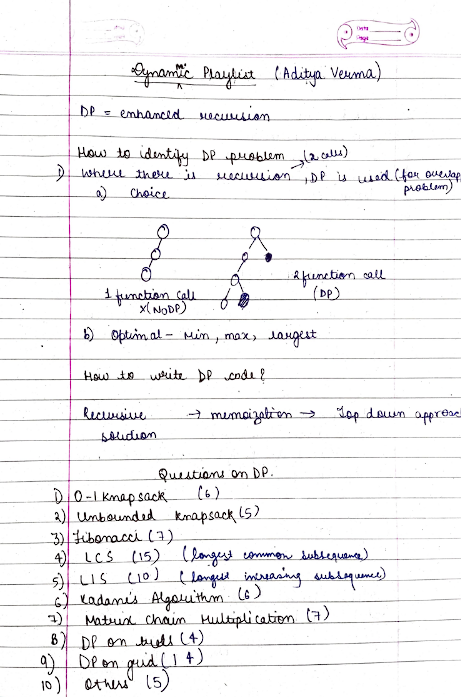 Dynamic Playlist (Aditya Verma)
DP = enhanced recursion
How to identify DP problem (2 calls)
1) Where there is recursion, DP is used (for overlap problem)
a) Choice
1 function call
X (No DP)
2 function call
(DP)
b) Optimal - Min, max, largest
How to write DP code?
Recursive solution → memoization → Top down approac
Questions on DP.
1) 0-1 Knapsack (6)
2) Unbounded Knapsack (5)
3) Fibonacci (7)
4) LCS (15) (longest common subsequence)
5) LIS (10) (longest increasing subsequence)
6) Kadane's Algorithm (6)
7) Matrix Chain Multiplication (7)
8) DP on trees (4)
9) DP on grid (14)
10) Others (5)